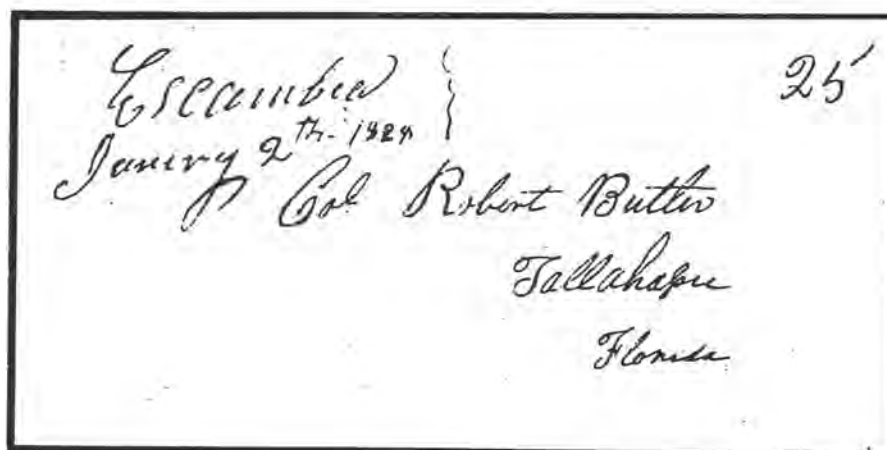 Escambia 25
Janury 2th. 1829
Col Robert Butler
Tallahassee
Florida